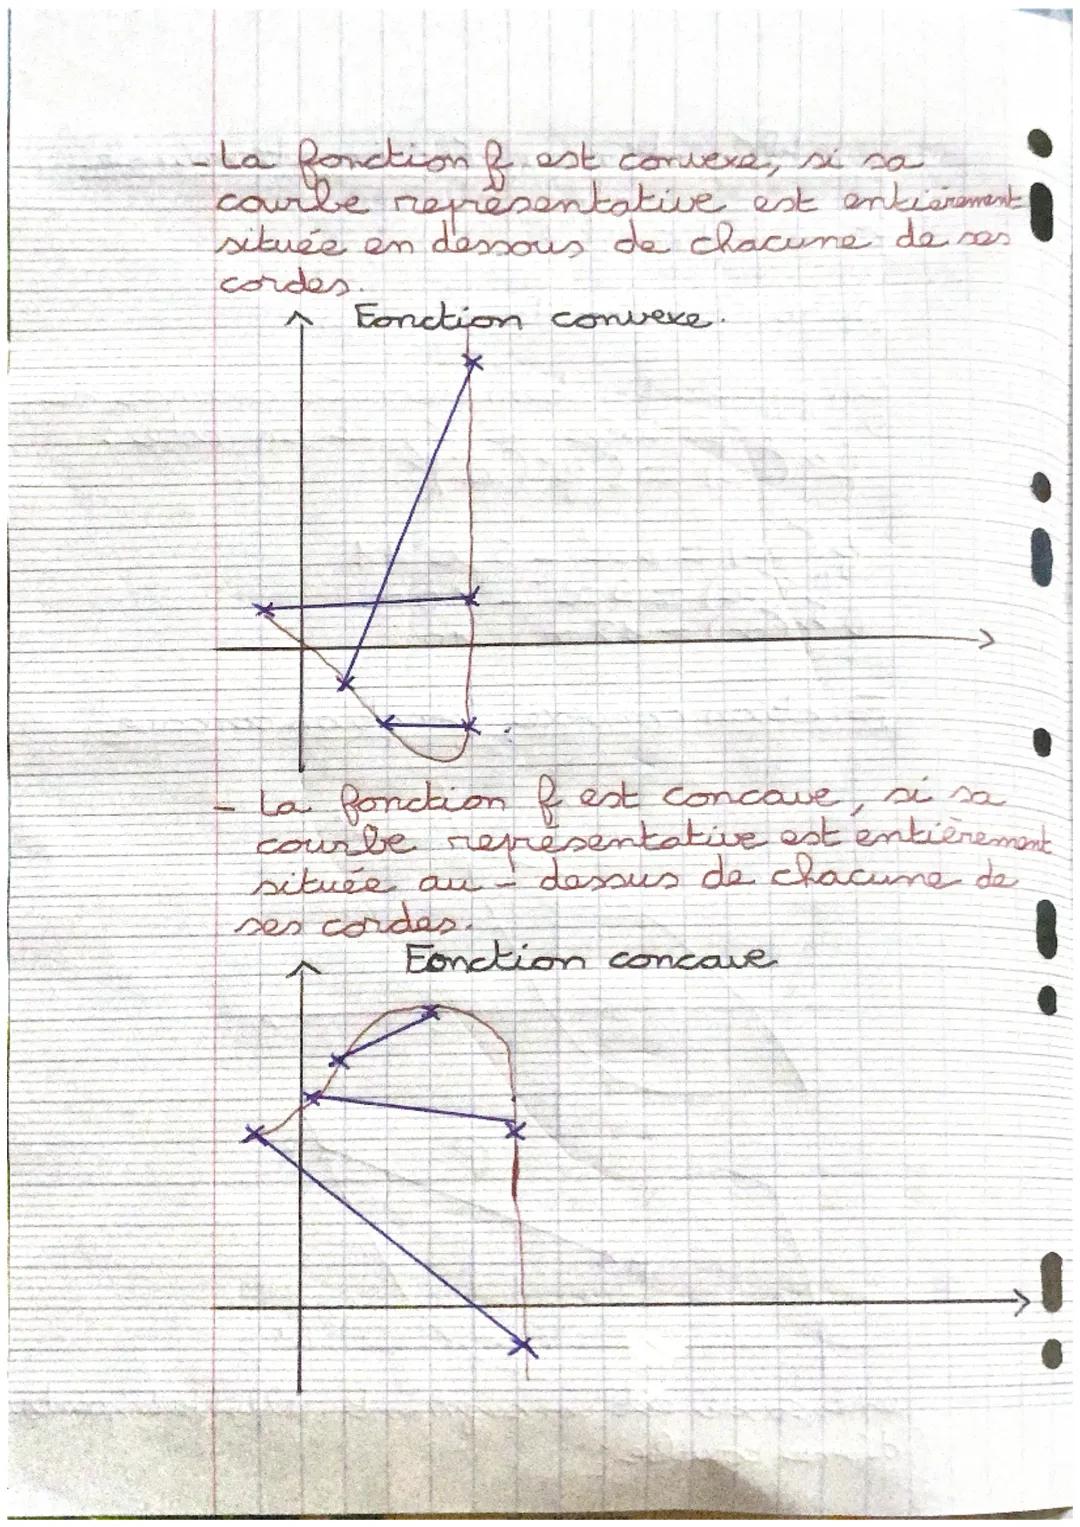 - La fonction f est convexe, si sa
courbe représentative est entièrement
située en dessous de chacune de ses
cordes.
Fonction convexe.
- La fonction f est concave, si sa
courbe représentative est entièrement
située au-dessus de chacune de
ses cordes.
Fonction concave